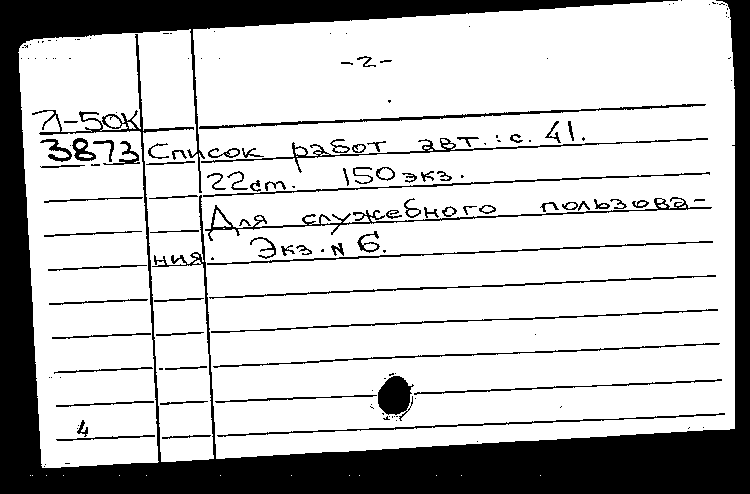 -2-
Л-50К
3873 Список работ авт.: с. 41.
22 cm. 150 экз.
Для служебного пользова-
ния. Экз. № 6.
4